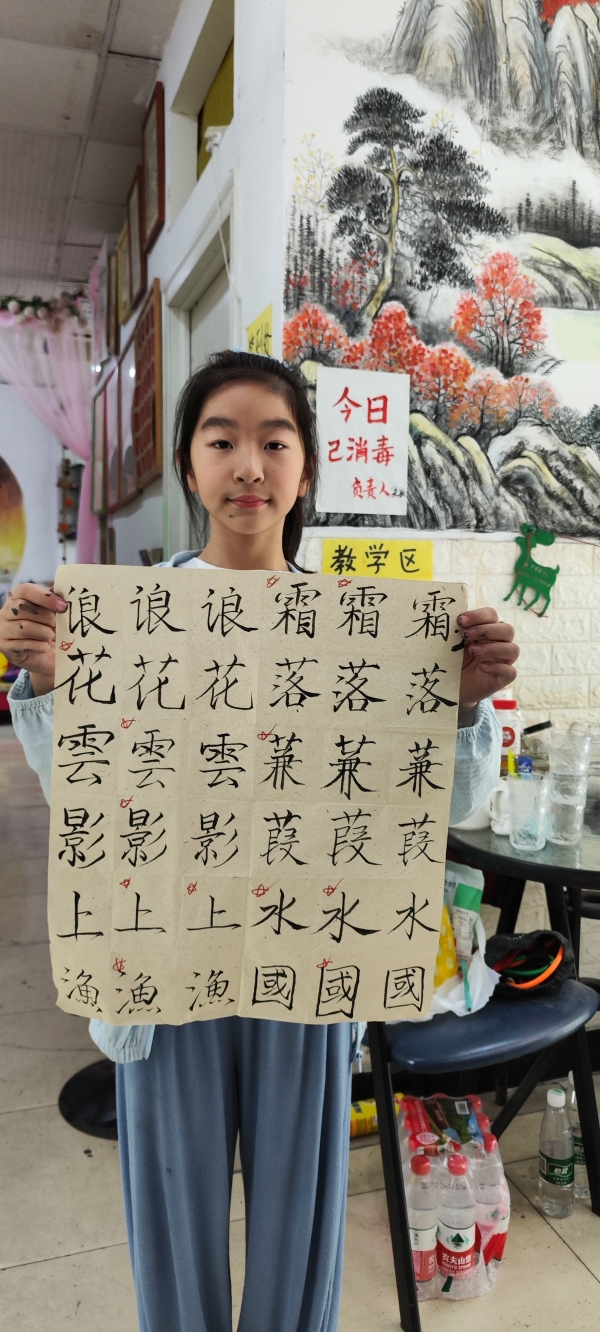 今日
己消毒
负责人
教学区
浪浪浪霜霜霜
花花花落落落
雲雲雲蒹蒹蒹
影影影葭葭葭
上上上水水水
漁漁漁國國國
怡宝
农夫山泉